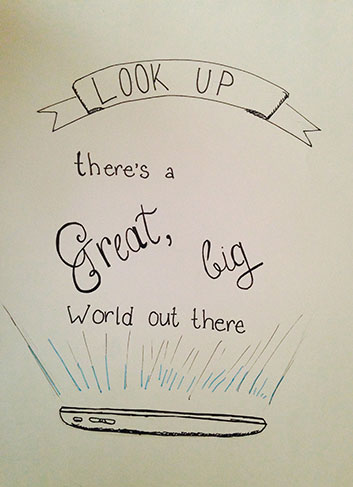 LOOK UP
there's a
Great, big
World out there